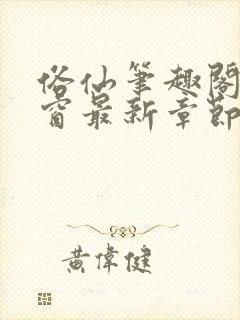 俗仙筆趣閣
窗最新章節
黃偉健